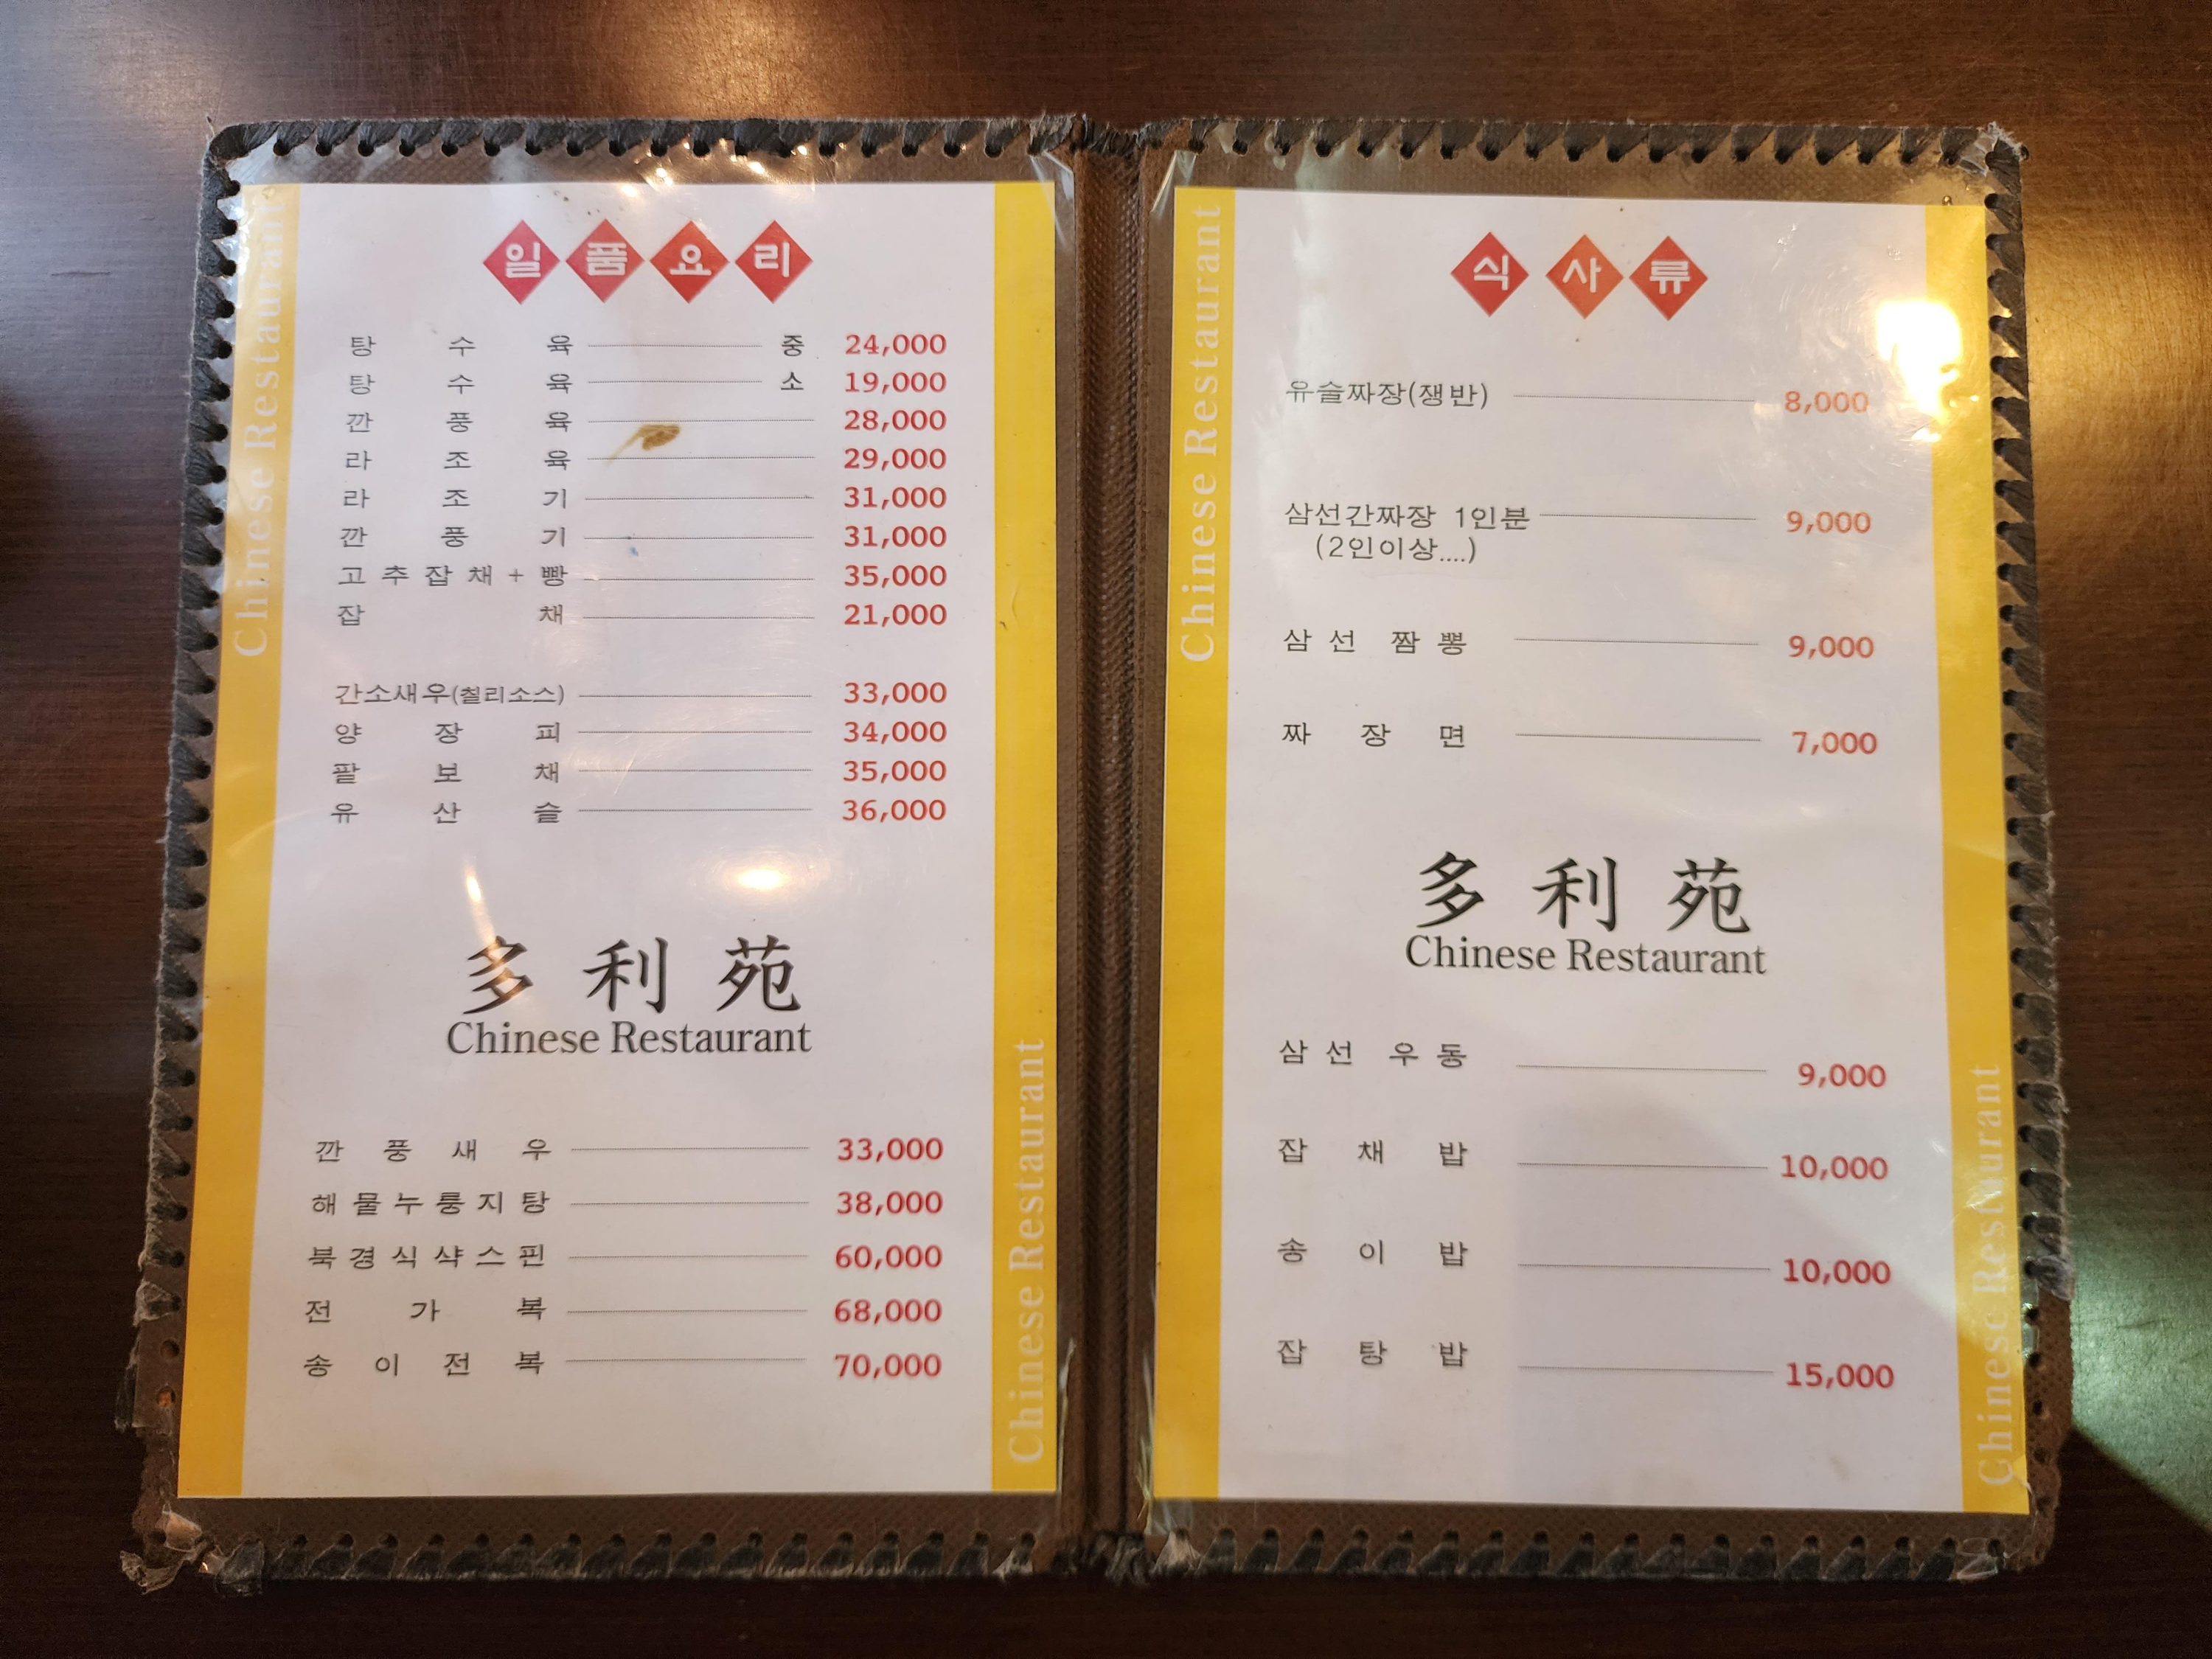 Chinese Restaurant
일품요리
탕수육 중 24,000
탕수육 소 19,000
깐풍육 28,000
라조육 29,000
라조기 31,000
깐풍기 31,000
고추잡채+빵 35,000
잡채 21,000
간소새우(칠리소스) 33,000
양장피 34,000
팔보채 35,000
유산슬 36,000
多利苑
Chinese Restaurant
깐풍새우 33,000
해물누룽지탕 38,000
북경식샥스핀 60,000
전가복 68,000
송이전복 70,000
Chinese Restaurant
Chinese Restaurant
식사류
유슬짜장(쟁반) 8,000
삼선간짜장 1인분 9,000
(2인이상....)
삼선 짬뽕 9,000
짜장면 7,000
多利苑
Chinese Restaurant
삼선 우동 9,000
잡채밥 10,000
송이밥 10,000
잡탕밥 15,000
Chinese Restaurant